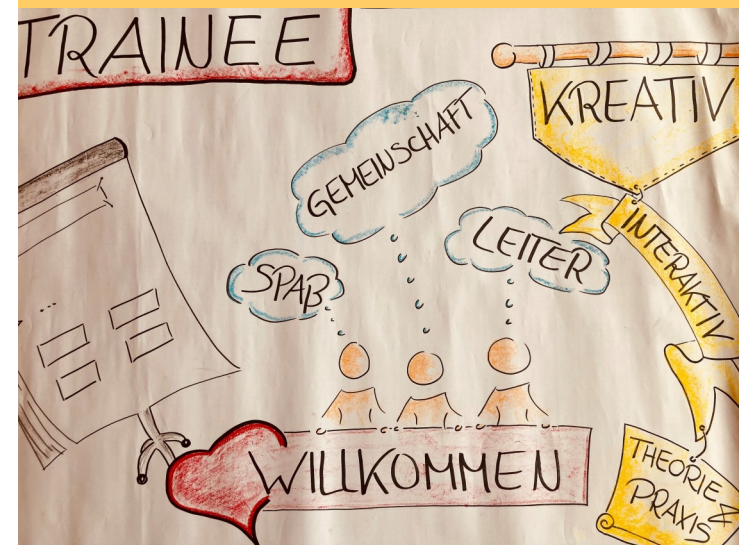 TRAINEE
KREATIV
GEMEINSCHAFT
LEITER
SPAß
INTERAKTIV
WILLKOMMEN
THEORIE &
PRAXIS